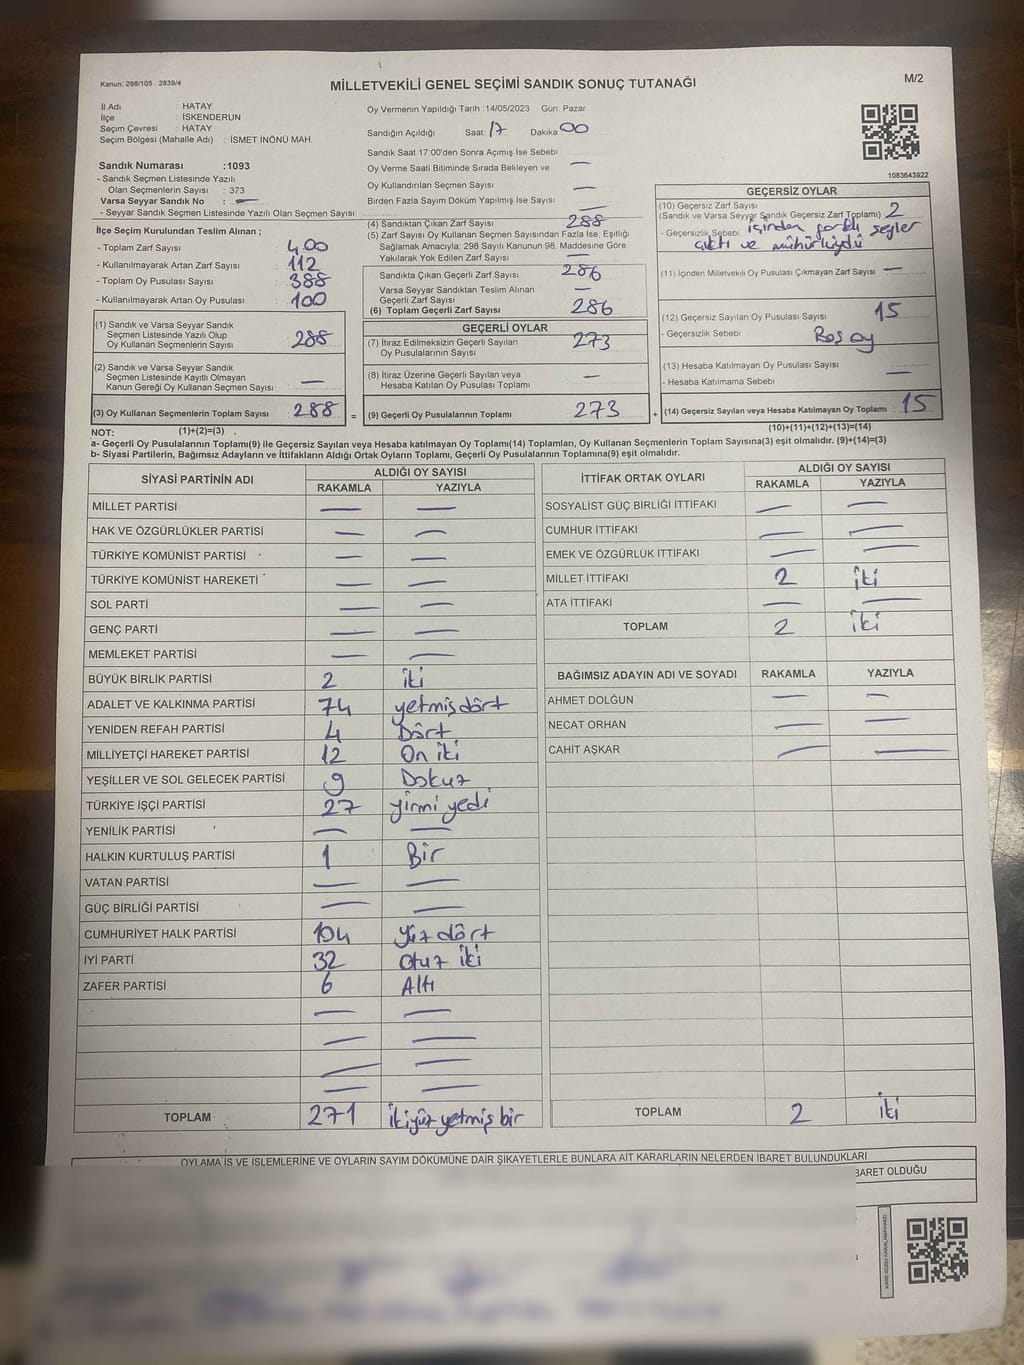 Kanun: 298/105 , 2839/4
MİLLETVEKİLİ GENEL SEÇİMİ SANDIK SONUÇ TUTANAĞI
M/2
İl Adı : HATAY
İlçe : İSKENDERUN
Seçim Çevresi : HATAY
Seçim Bölgesi (Mahalle Adı) : İSMET İNÖNÜ MAH.
Oy Vermenin Yapıldığı Tarih : 14/05/2023 Gün: Pazar
Sandığın Açıldığı Saat: 17 Dakika 00
Sandık Saat 17:00'den Sonra Açımış İse Sebebi
Oy Verme Saati Bitiminde Sırada Bekleyen ve —
Oy Kullandırılan Seçmen Sayısı —
Birden Fazla Sayım Döküm Yapılmış İse Sayısı —
1083643922
Sandık Numarası :1093
- Sandık Seçmen Listesinde Yazılı
Olan Seçmenlerin Sayısı : 373
Varsa Seyyar Sandık No : —
- Seyyar Sandık Seçmen Listesinde Yazılı Olan Seçmen Sayısı:
İlçe Seçim Kurulundan Teslim Alınan ;
- Toplam Zarf Sayısı : 400
- Kullanılmayarak Artan Zarf Sayısı : 112
- Toplam Oy Pusulası Sayısı : 388
- Kullanılmayarak Artan Oy Pusulası : 100
(1) Sandık ve Varsa Seyyar Sandık
Seçmen Listesinde Yazılı Olup
Oy Kullanan Seçmenlerin Sayısı : 288
(2) Sandık ve Varsa Seyyar Sandık
Seçmen Listesinde Kayıtlı Olmayan
Kanun Gereği Oy Kullanan Seçmen Sayısı : —
(3) Oy Kullanan Seçmenlerin Toplam Sayısı : 288 =
(4) Sandıktan Çıkan Zarf Sayısı 288
(5) Zarf Sayısı Oy Kullanan Seçmen Sayısından Fazla İse, Eşitliği
Sağlamak Amacıyla; 298 Sayılı Kanunun 98. Maddesine Göre
Yakılarak Yok Edilen Zarf Sayısı —
Sandıkta Çıkan Geçerli Zarf Sayısı 286
Varsa Seyyar Sandıktan Teslim Alınan
Geçerli Zarf Sayısı —
(6) Toplam Geçerli Zarf Sayısı 286
GEÇERLİ OYLAR
(7) İtiraz Edilmeksizin Geçerli Sayılan
Oy Pusulalarının Sayısı 273
(8) İtiraz Üzerine Geçerli Sayılan veya
Hesaba Katılan Oy Pusulası Toplamı —
(9) Geçerli Oy Pusulalarının Toplamı 273 +
GEÇERSİZ OYLAR
(10) Geçersiz Zarf Sayısı
(Sandık ve Varsa Seyyar Sandık Geçersiz Zarf Toplamı) 2
- Geçersizlik Sebebi içinden farklı şeyler
çıktı ve mühürlüydü
(11) İçinden Milletvekili Oy Pusulası Çıkmayan Zarf Sayısı —
(12) Geçersiz Sayılan Oy Pusulası Sayısı 15
- Geçersizlik Sebebi Boş oy
(13) Hesaba Katılmayan Oy Pusulası Sayısı —
- Hesaba Katılmama Sebebi
(14) Geçersiz Sayılan veya Hesaba Katılmayan Oy Toplamı : 15
NOT: (1)+(2)=(3) . (10)+(11)+(12)+(13)=(14)
a- Geçerli Oy Pusulalarının Toplamı(9) ile Geçersiz Sayılan veya Hesaba katılmayan Oy Toplamı(14) Toplamları, Oy Kullanan Seçmenlerin Toplam Sayısına(3) eşit olmalıdır. (9)+(14)=(3)
b- Siyasi Partilerin, Bağımsız Adayların ve İttifakların Aldığı Ortak Oyların Toplamı, Geçerli Oy Pusulalarının Toplamına(9) eşit olmalıdır.
SİYASİ PARTİNİN ADI ALDIĞI OY SAYISI
RAKAMLA YAZIYLA
MİLLET PARTİSİ — —
HAK VE ÖZGÜRLÜKLER PARTİSİ — —
TÜRKİYE KOMÜNİST PARTİSİ — —
TÜRKİYE KOMÜNİST HAREKETİ — —
SOL PARTİ — —
GENÇ PARTİ — —
MEMLEKET PARTİSİ — —
BÜYÜK BİRLİK PARTİSİ 2 iki
ADALET VE KALKINMA PARTİSİ 74 yetmiş dört
YENİDEN REFAH PARTİSİ 4 Dört
MİLLİYETÇİ HAREKET PARTİSİ 12 On iki
YEŞİLLER VE SOL GELECEK PARTİSİ 9 Dokuz
TÜRKİYE İŞÇİ PARTİSİ 27 yirmi yedi
YENİLİK PARTİSİ — —
HALKIN KURTULUŞ PARTİSİ 1 Bir
VATAN PARTİSİ — —
GÜÇ BİRLİĞİ PARTİSİ — —
CUMHURİYET HALK PARTİSİ 104 Yüz dört
İYİ PARTİ 32 otuz iki
ZAFER PARTİSİ 6 Altı
— —
— —
— —
— —
TOPLAM 271 ikiyüz yetmiş bir
İTTİFAK ORTAK OYLARI ALDIĞI OY SAYISI
RAKAMLA YAZIYLA
SOSYALİST GÜÇ BİRLİĞİ İTTİFAKI — —
CUMHUR İTTİFAKI — —
EMEK VE ÖZGÜRLÜK İTTİFAKI — —
MİLLET İTTİFAKI 2 iki
ATA İTTİFAKI — —
TOPLAM 2 iki
BAĞIMSIZ ADAYIN ADI VE SOYADI RAKAMLA YAZIYLA
AHMET DOLĞUN — —
NECAT ORHAN — —
CAHİT AŞKAR — —
TOPLAM 2 iki
OYLAMA İŞ VE İŞLEMLERİNE VE OYLARIN SAYIM DÖKÜMÜNE DAİR ŞİKAYETLERLE BUNLARA AİT KARARLARIN NELERDEN İBARET BULUNDUKLARI
BARET OLDUĞU